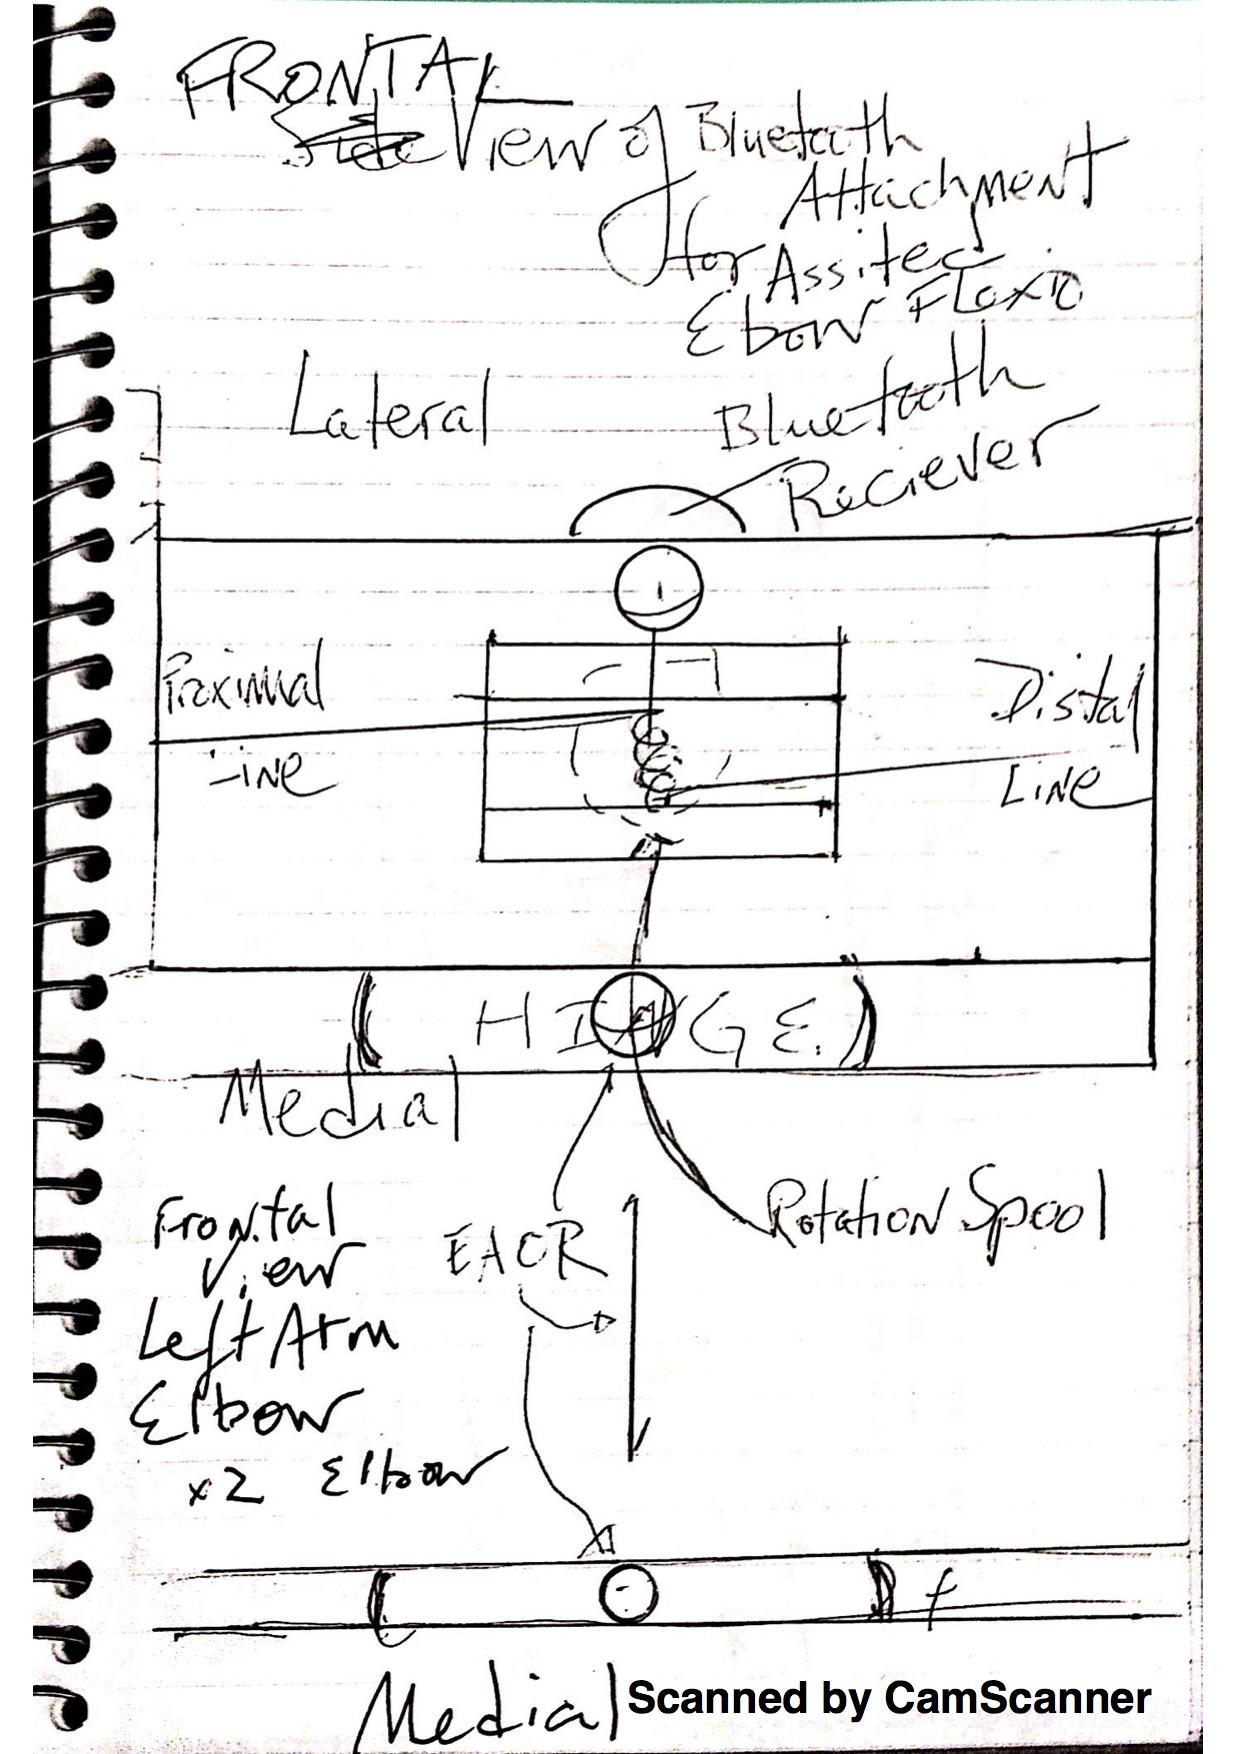 FRONTAL
Side View of Bluetooth
Attachment
for Assited
Ebow Flexio
Lateral
Bluetooth
Reciever
Proximal
Line
Distal
Line
HINGE
Medial
Frontal
View
Left Arm
Elbow
x2 Elbow
EAOR
Rotation Spool
Medial
Scanned by CamScanner